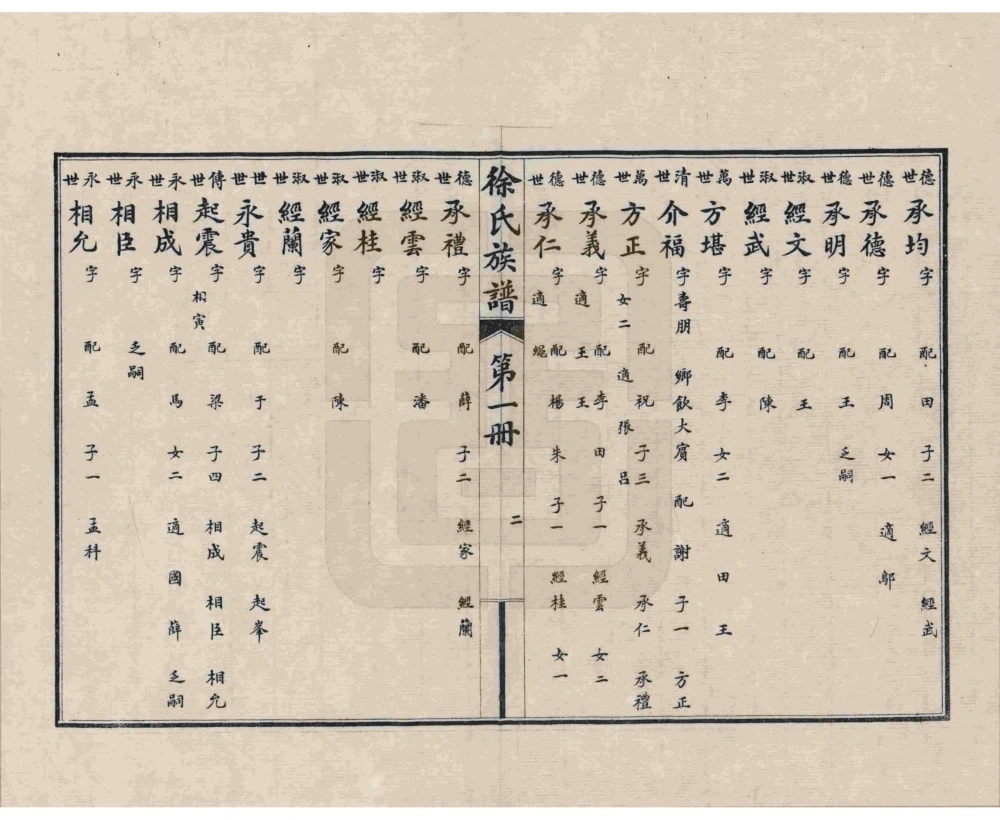 德世 承均 字 配 田 子二 經文 經武
德世 承德 字 配 周 女一 適 鄔
德世 承明 字 配 王 乏嗣
淑世 經文 字 配 王
淑世 經武 字 配 陳
萬世 方堪 字 配 李 女二 適 田 王
清世 介福 字 壽朋 鄉飲大賓 配 謝 子一 方正
萬世 方正 字 配 祝 子三 承義 承仁 承禮
女二 適 張 呂
德世 承義 字 配 李 田 子一 經雲 女二
適 王 王
德世 承仁 字 配 楊 朱 子一 經桂 女一
適
徐氏族譜 第一冊 二
德世 承禮 字 配 薛 子二 經家 經蘭
淑世 經雲 字 配 潘
淑世 經桂 字
淑世 經家 字 配 陳
淑世 經蘭 字
世世 永貴 字 配 于 子二 起震 起峯
傳世 起震 字 相寅 配 梁 子四 相成 相臣 相允
永世 相成 字 配 馬 女二 適 國 薛 乏嗣
永世 相臣 字 乏嗣
永世 相允 字 配 孟 子一 孟科